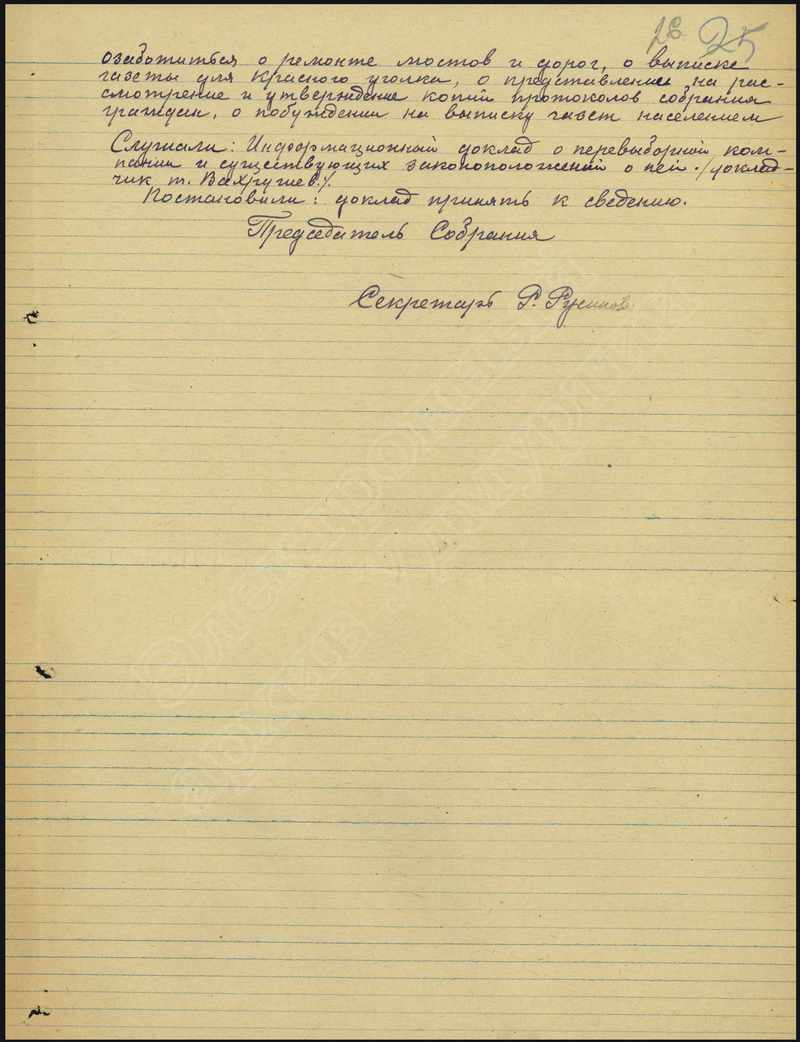 26 25
озаботиться о ремонте мостов и дорог, о выписке
газеты для красного уголка, о представлении на рас-
смотрение и утверждение копий протоколов собрания
граждан, о побуждении на выписку газет населением
Слушали: Информационный доклад о перевыборной ком-
пании и существующих законоположений о ней ·/доклад-
чик т. Вахрушев./.
Постановили: доклад принять к сведению.
Председатель Собрания
Секретарь Р. Русинов
Электронный
архив Удмуртии